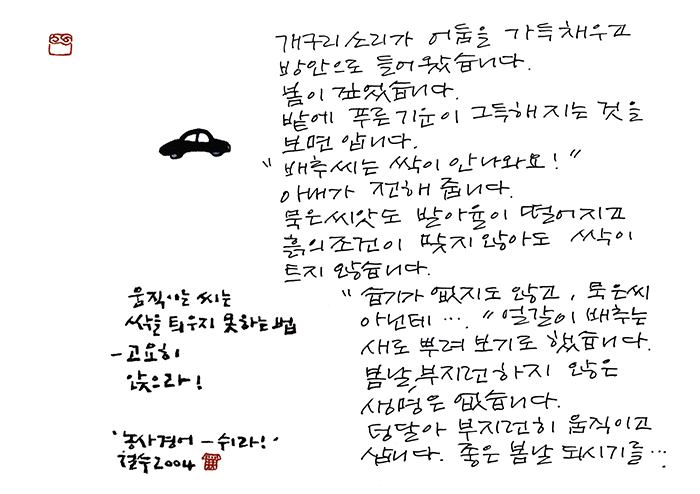 개구리소리가 어둠을 가득채우고
방안으로 들어왔습니다.
봄이 깊었습니다.
밭에 푸른기운이 그득해지는 것을
보면 압니다.
"배추씨는 싹이 안나와요!"
아내가 전해 줍니다.
묵은씨앗도 발아율이 떨어지고
흙의조건이 맞지않아도 싹이
트지 않습니다.
"습기가 없지도 않고, 묵은씨
아닌데…." 얼갈이배추는
새로 뿌려 보기로 했습니다.
봄날, 부지런하지 않은
생명은 없습니다.
덩달아 부지런히 움직이고
삽니다. 좋은 봄날 되시기를…
움직이는 씨는
싹을 틔우지 못하는 법
-고요히
앉으라!
'농사경어 - 쉬라!'
철수2004